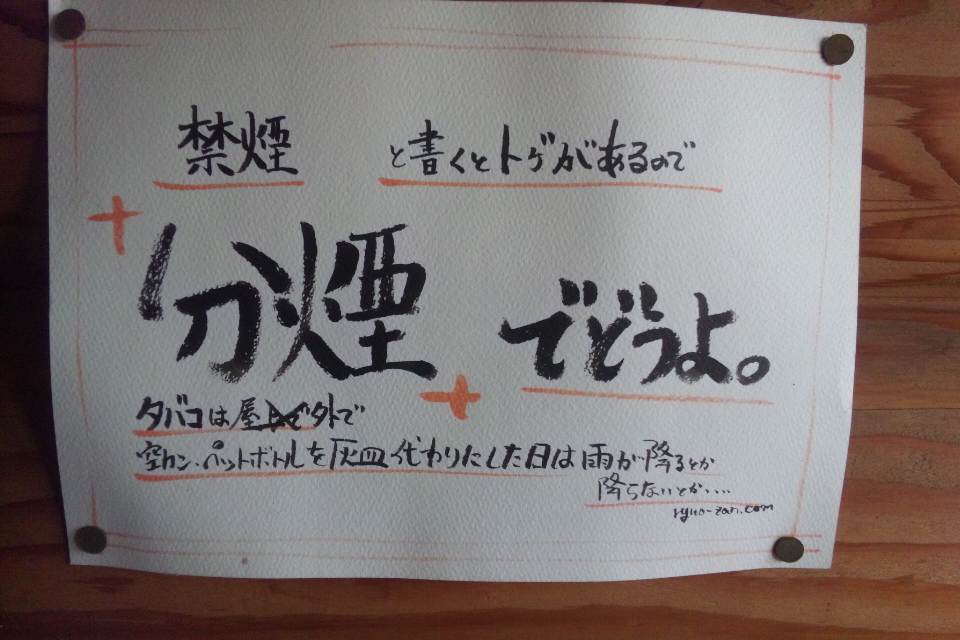 禁煙 と書くとトゲがあるので
分煙 でどうよ。
タバコは屋外で
空カン・ペットボトルを灰皿代わりにした日は雨が降るとか
降らないとか・・・